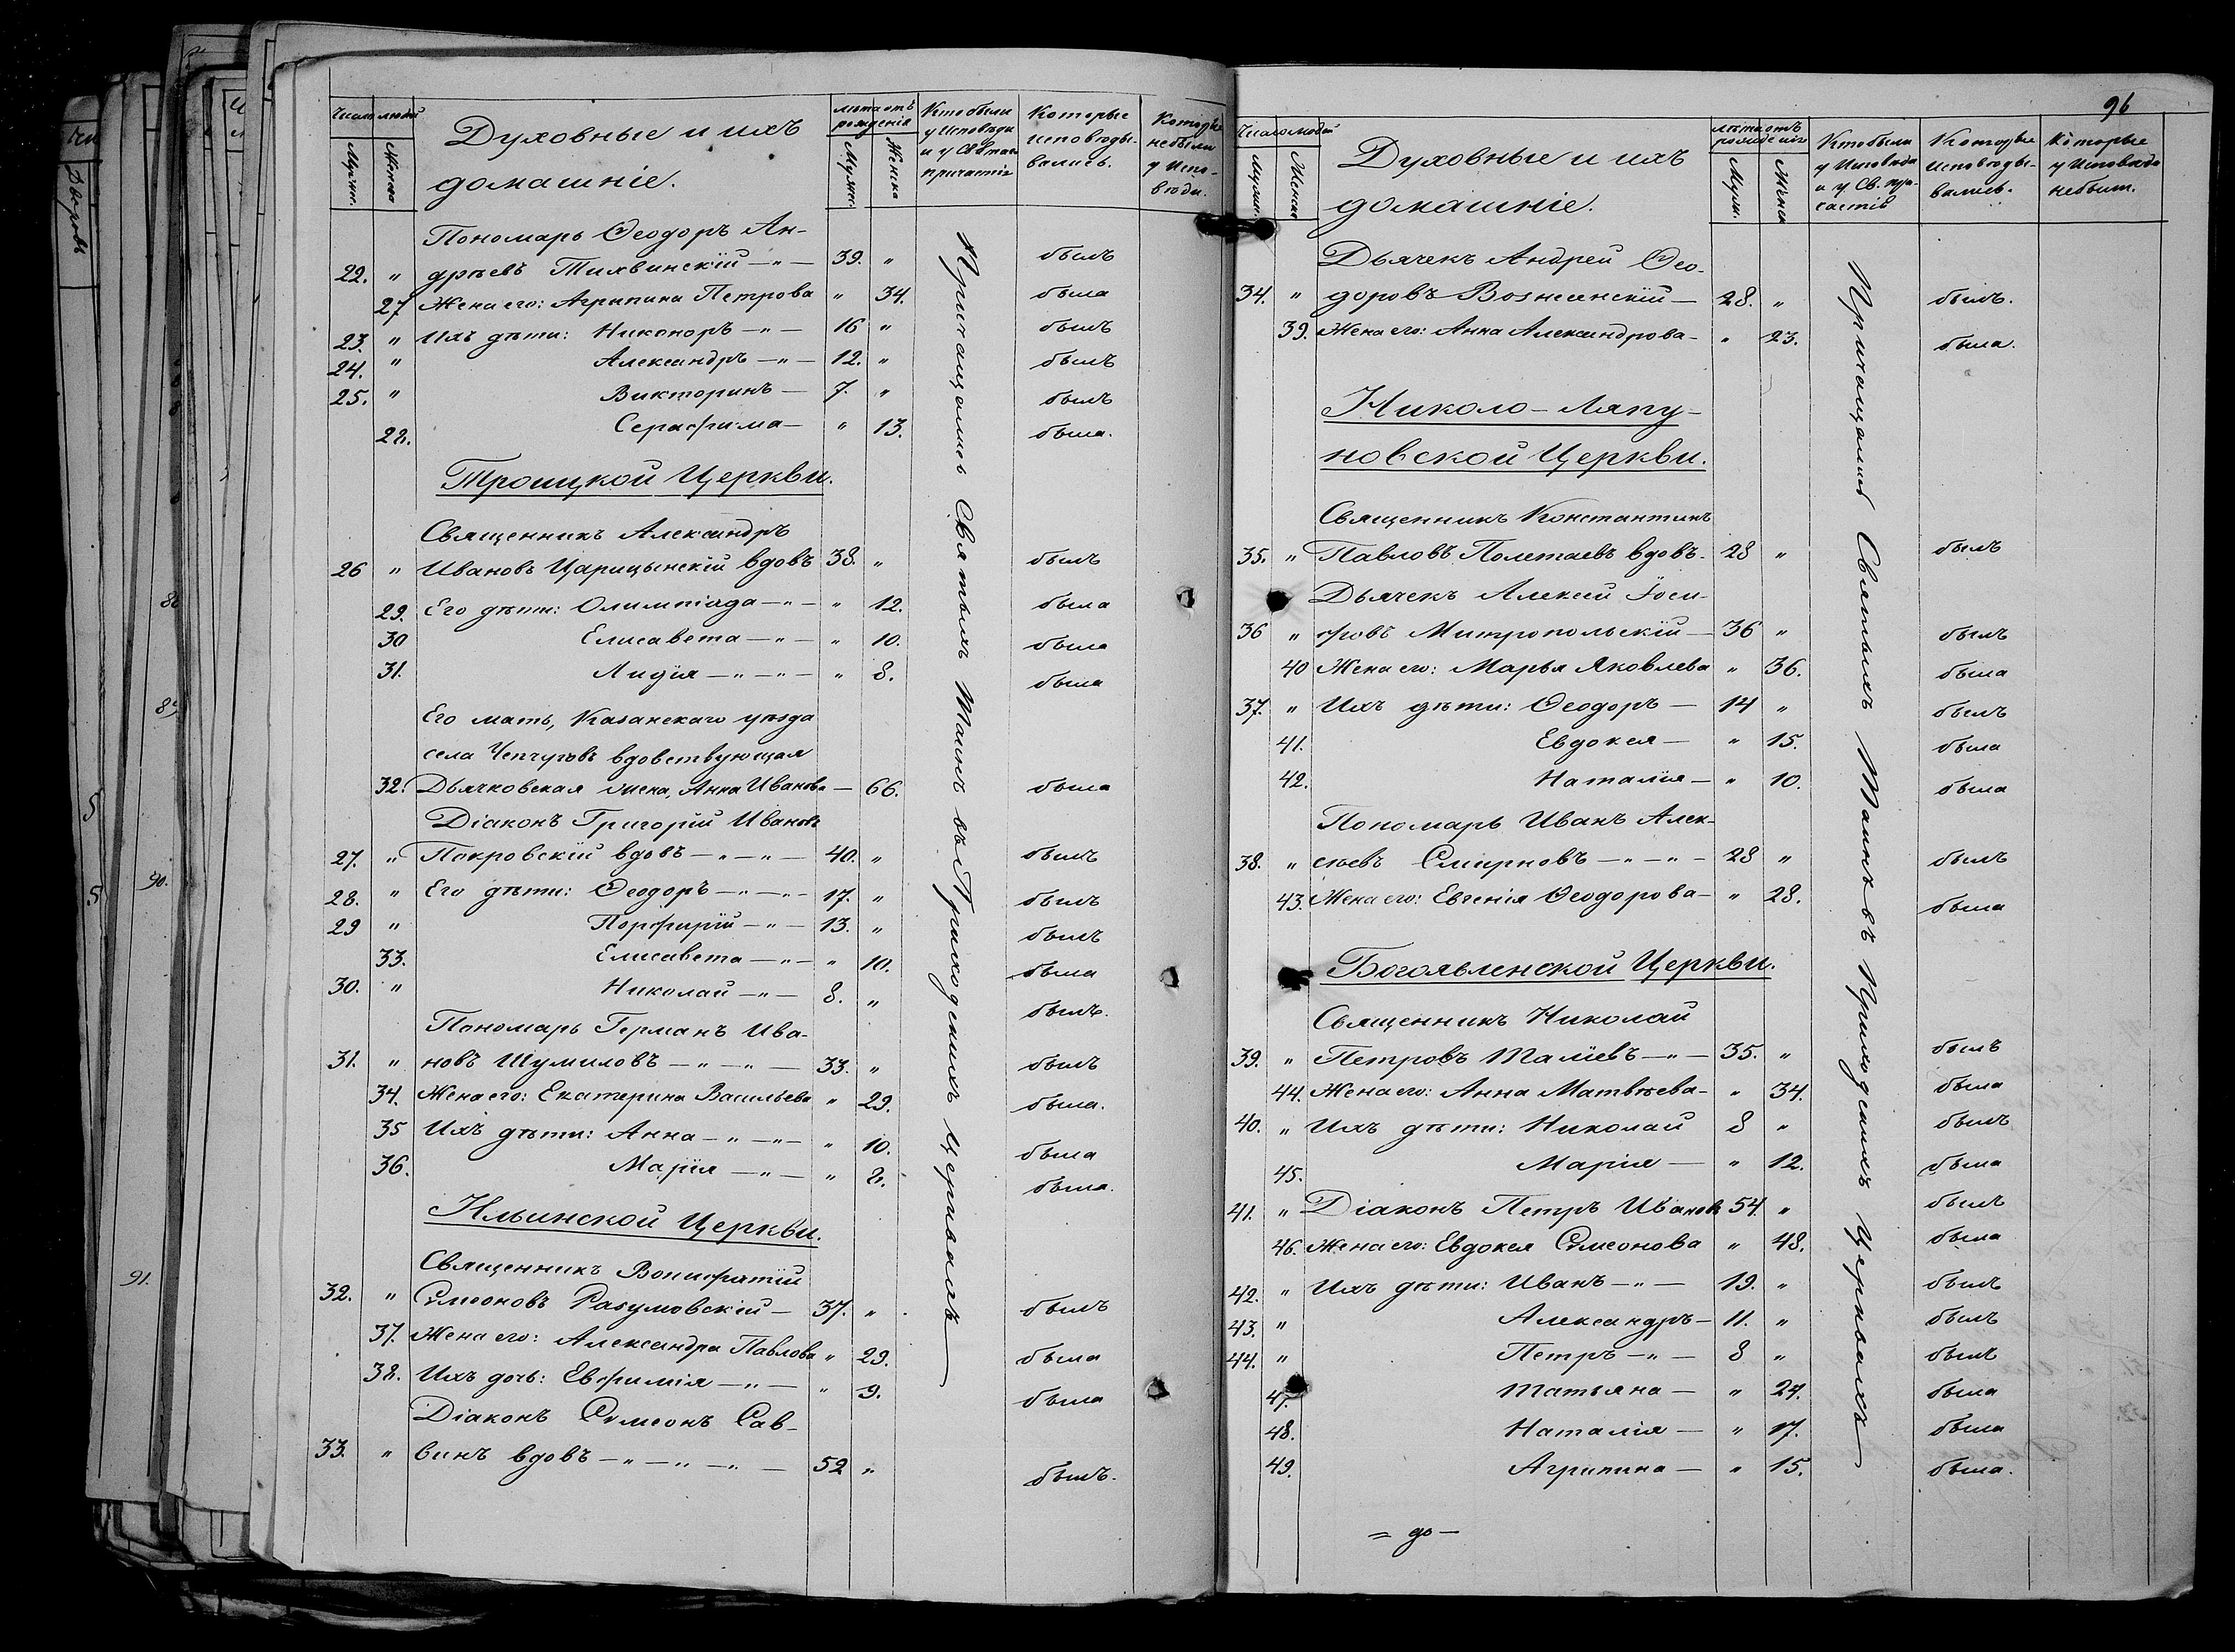 Число людей
Мужск.
Женск.
Духовные и ихъ
домашніе.
лѣта отъ
рожденія
Мужс.
Женска
Кто были
у Исповѣди
и у Святаго
причастія
Которые
исповѣды-
вались.
Которые
не были
у испо-
вѣди.
Пономарь Ѳеодоръ Ан-
22. " дрѣевъ Тихвинскій —"— 39. " былъ
27 Жена его: Агрипина Петрова " 34. была
23. " Ихъ дѣти: Никоноръ —"— 16 " былъ
24. " Александръ —"— 12. " былъ
25. " Викторинъ — 7. " былъ
28. Серафима — " 13. была.
Троицкой Церкви.
Священникъ Александръ
26 " Ивановъ Царицынскій вдовъ 38. " былъ
29. Его дѣти: Олимпіада —"— " 12. была
30 Елисавета —"— " 10. была
31. Лидія —"—"— " 8. была
Его мать, Казанскаго уѣзда
села Чепчуговъ вдовствующая
32. Дьячковская жена, Анна Иванова — 66. была
Діаконъ Григорій Ивановъ
27. " Покровскій вдовъ —"—"— 40. " былъ
28. " Его дѣти: Ѳеодоръ —"—"— 17. " былъ
29 " Порфирій —"— 13. " былъ
33. Елисавета —"— " 10. была
30. " Николай —"— 8. " былъ.
Пономарь Германъ Ива-
31. " новъ Шумиловъ —"—"— 33. " былъ
34. Жена его: Екатерина Васильева " 29. была.
35 Ихъ дѣти: Анна —"—"— " 10. была
36. Марія —"— " 8. была.
Ильинской Церкви.
Священникъ Вонифатій
32. " Симеоновъ Разумовскій — 37. " былъ
37. Жена его: Александра Павлова " 29. была
38. Ихъ дочь: Евфимія —"— " 9. была
Діаконъ Симеонъ Сав-
33. " винъ вдовъ —"—"—"— 52 " былъ.
Причащались Святыхъ Таинъ въ Приходскихъ Церквахъ
96
Число людей
Мужск.
Женск
Духовные и ихъ
домашніе.
лѣта отъ
рожденія
Мужс.
Женск
Кто были
у Исповѣди
и у Св. при-
частія
Которые
исповѣды-
вались.
Которые
у Исповѣди
не были.
Дьячекъ Андрей Ѳео-
34. " доровъ Вознесенскій — 28. " былъ.
39. Жена его: Анна Александрова — " 23. была.
Николо-Ляпу-
новской Церкви.
Священникъ Константинъ
35. " Павловъ Полетаевъ вдовъ - 28 " былъ
Дьячекъ Алексей Іоси-
36 " фовъ Митропольскій — 36 " былъ
40 Жена его: Марья Яковлева " 36. была
37. " Ихъ дѣти: Ѳеодоръ — 14 " былъ
41. Евдокея — " 15. была
42. Наталія — " 10. была
Пономарь Иванъ Алек-
38. " сѣевъ Смирновъ —"—"— 28 " былъ
43. Жена его: Евгенія Ѳеодорова — " 28. была
Богоявленской Церкви.
Священникъ Николай
39. " Петровъ Таліевъ —"— 35. " былъ
44. Жена его: Анна Матвѣева — " 34. была
40. " Ихъ дѣти: Николай 8 " былъ
45. Марія — " 12. была
41. " Діаконъ Петръ Ивановъ 54. " былъ
46. Жена его: Евдокея Симеонова " 48. была
42. " Ихъ дѣти: Иванъ —"— 19. " былъ
43. " Александръ — 11. " былъ
44. " Петръ —"— 8 " былъ
47. Татьяна — " 24. была
48. Наталія — " 17. была
49. Агрипина — " 15. была.
Причащались Святыхъ Таинъ въ Приходскихъ Церквахъ
= до —
90.
91.